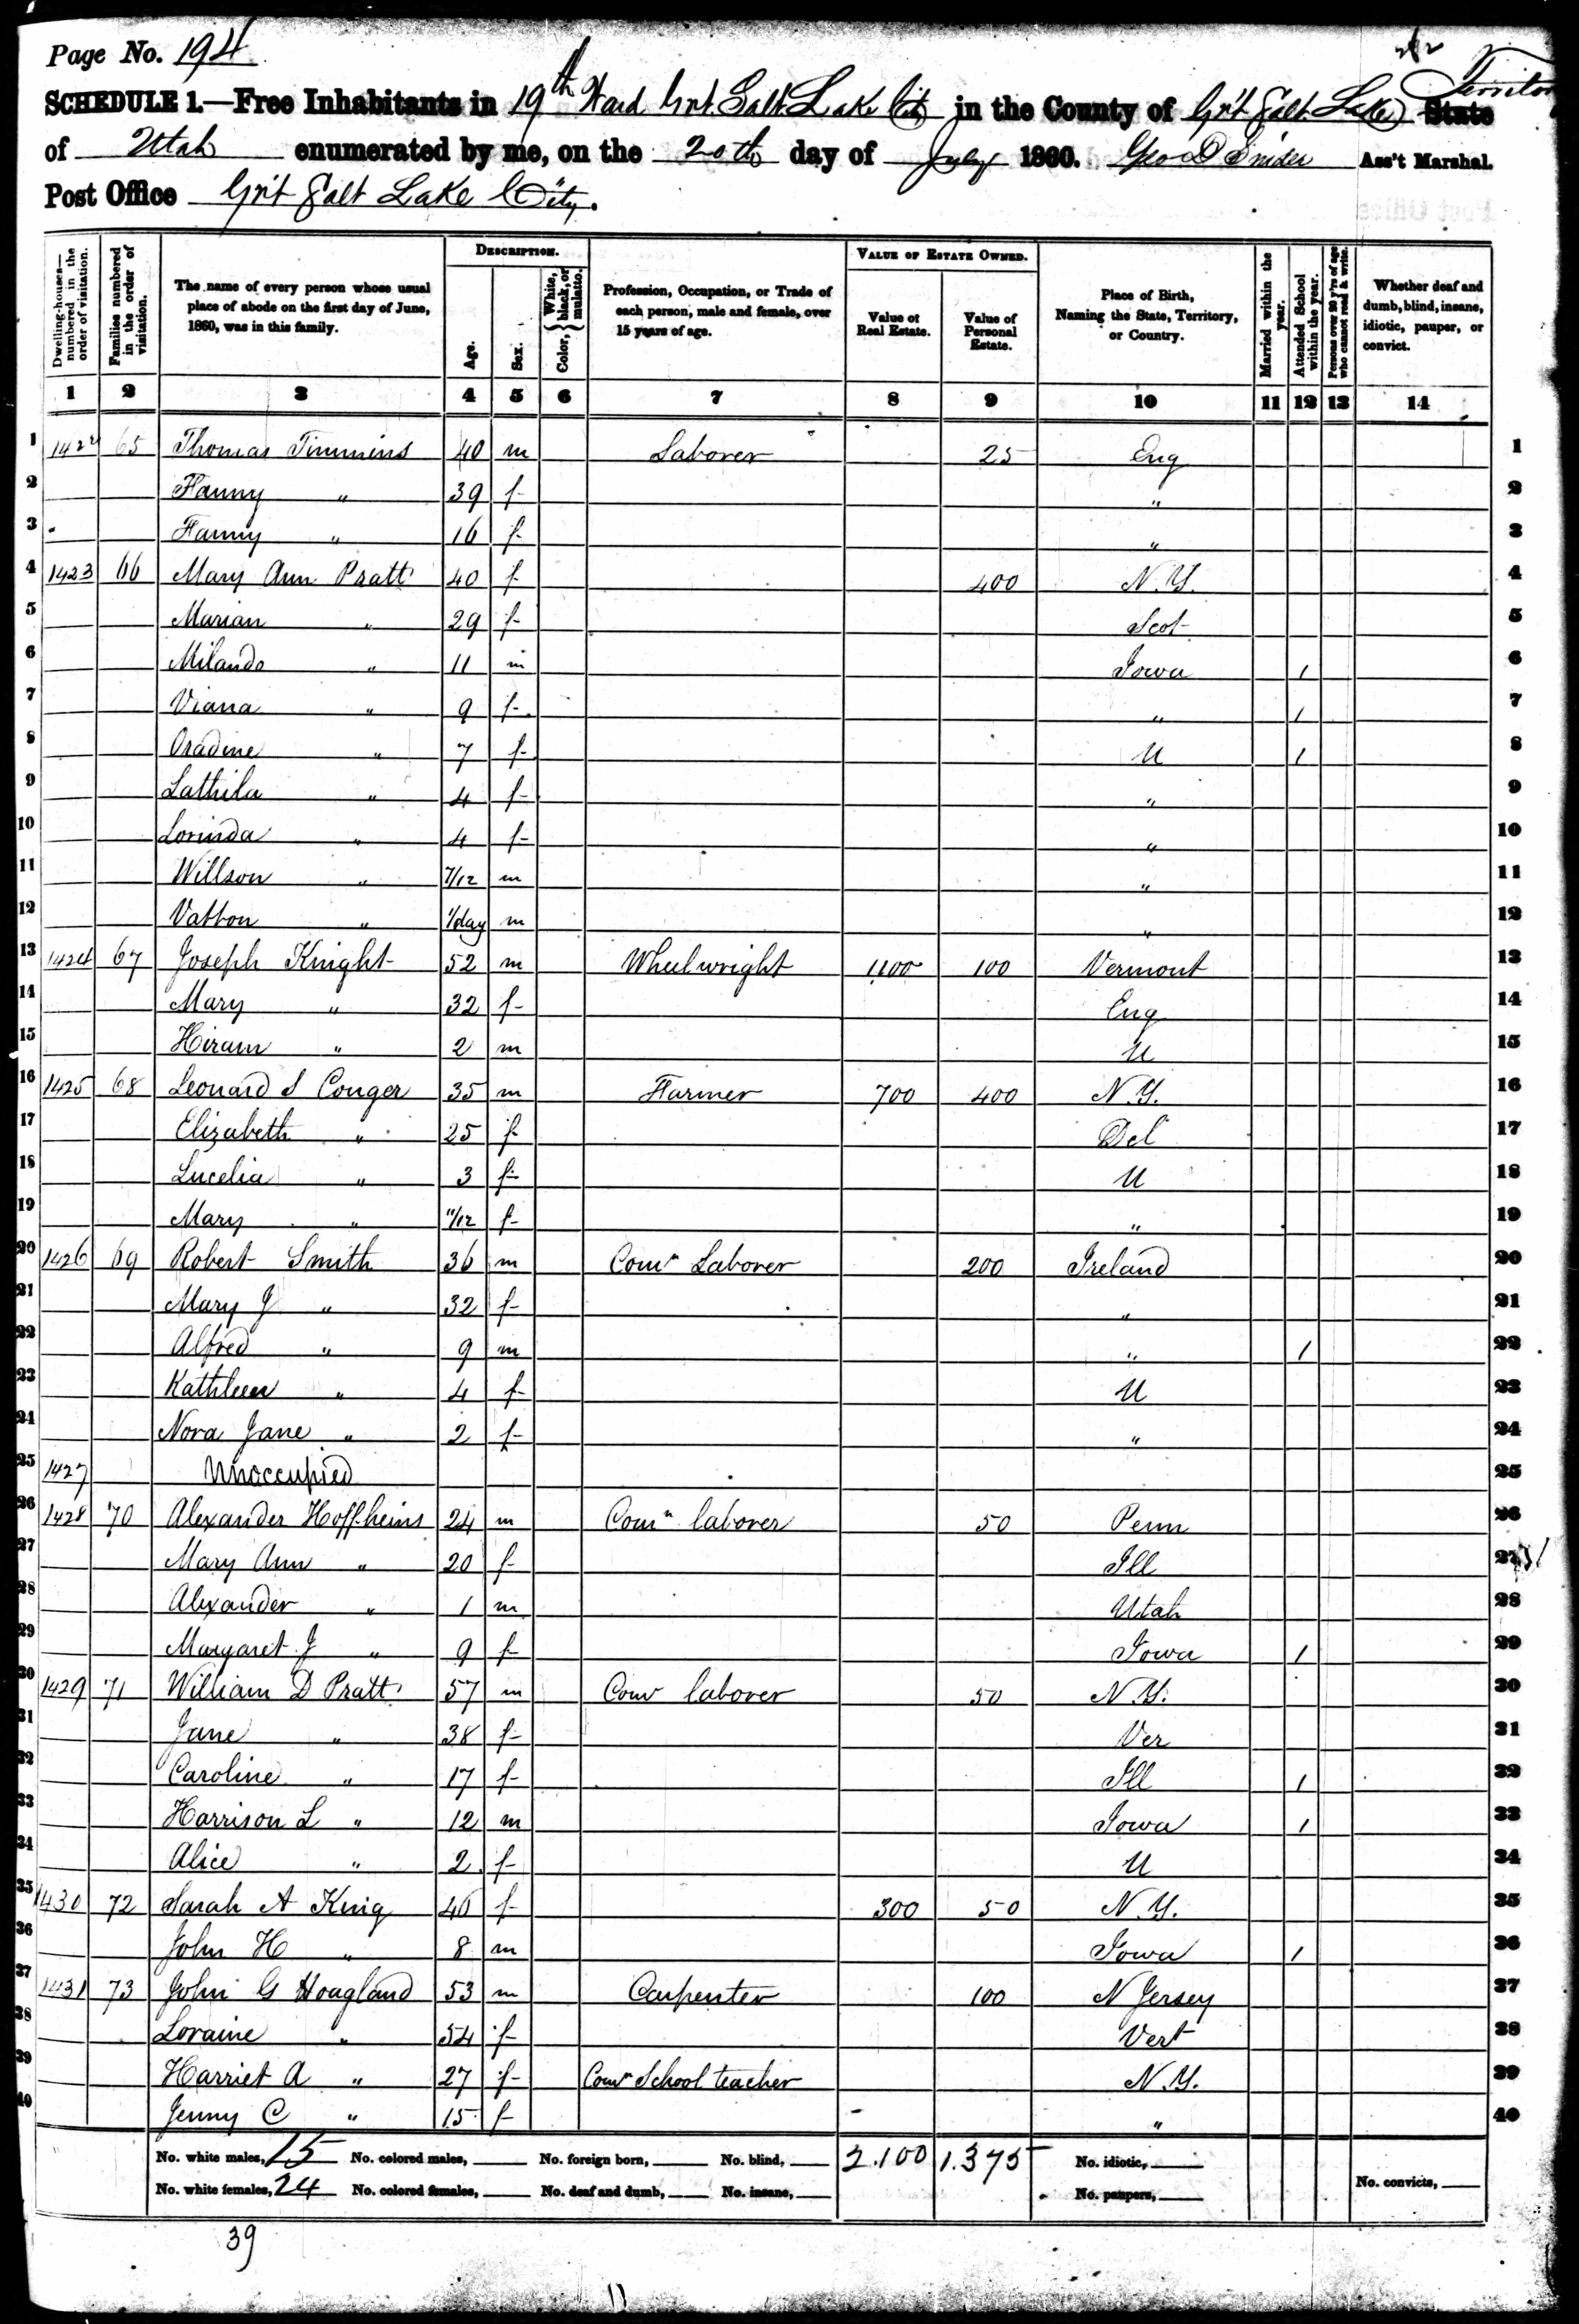 Page No. 194
Territory
SCHEDULE 1.—Free Inhabitants in 19th Ward Grt. Salt Lake City in the County of Gr't Salt Lake State
of Utah enumerated by me, on the 20th day of July 1860. Geo D Snider Ass't Marshal.
Post Office Gr't Salt Lake City.
Dwelling-houses—numbered in the order of visitation.
Families numbered in the order of visitation.
The name of every person whose usual place of abode on the first day of June, 1860, was in this family.
DESCRIPTION.
Age.
Sex.
Color, { White, black, or mulatto.
Profession, Occupation, or Trade of each person, male and female, over 15 years of age.
VALUE OF ESTATE OWNED.
Value of Real Estate.
Value of Personal Estate.
Place of Birth, Naming the State, Territory, or Country.
Married within the year.
Attended School within the year.
Persons over 20 y'rs of age who cannot read & write.
Whether deaf and dumb, blind, insane, idiotic, pauper, or convict.
1 2 3 4 5 6 7 8 9 10 11 12 13 14
1 1422 65 Thomas Timmins 40 m Laborer 25 Eng 1
2 Fanny " 39 f " 2
3 Fanny " 16 f " 3
4 1423 66 Mary Ann Pratt 40 f 400 N.Y. 4
5 Marian " 29 f Scot 5
6 Milando " 11 m Iowa 1 6
7 Viana " 9 f " 1 7
8 Oradine " 7 f U 1 8
9 Lathila " 4 f " 9
10 Lorinda " 4 f " 10
11 Willson " 7/12 m " 11
12 Vabbon " 1/day m " 12
13 1424 67 Joseph Knight 52 m Wheelwright 1100 100 Vermont 13
14 Mary " 32 f Eng 14
15 Hiram " 2 m U 15
16 1425 68 Leonard S Conger 35 m Farmer 700 400 N.Y. 16
17 Elizabeth " 25 f Del 17
18 Lucelia " 3 f U 18
19 Mary " 11/12 f " 19
20 1426 69 Robert Smith 36 m Comn Laborer 200 Ireland 20
21 Mary J " 32 f " 21
22 Alfred " 9 m " 1 22
23 Kathleen " 4 f U 23
24 Nora Jane " 2 f " 24
25 1427 Unoccupied 25
26 1428 70 Alexander Hoffheins 24 m Comn laborer 50 Penn 26
27 Mary Ann " 20 f Ill 27
28 Alexander " 1 m Utah 28
29 Margaret J " 9 f Iowa 1 29
30 1429 71 William D Pratt 57 m Com laborer 50 N.Y. 30
31 Jane " 38 f Ver 31
32 Caroline " 17 f Ill 1 32
33 Harrison L " 12 m Iowa 1 33
34 Alice " 2 f U 34
35 1430 72 Sarah A King 46 f 300 50 N.Y. 35
36 John H " 8 m Iowa 1 36
37 1431 73 John G Hoagland 53 m Carpenter 100 N Jersey 37
38 Loraine " 54 f Vert 38
39 Harriet A " 27 f Comn School teacher N.Y. 39
40 Jenny C " 15 f " 40
No. white males, 15 No. colored males, No. foreign born, No. blind, 2.100 1.375 No. idiotic,
No. white females, 24 No. colored females, No. deaf and dumb, No. insane, No. paupers, No. convicts,
39